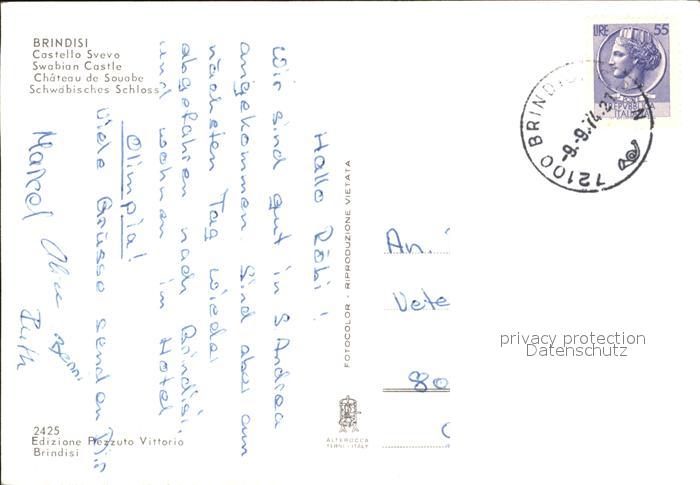 BRINDISI
Castello Svevo
Swabian Castle
Château de Souabe
Schwäbisches Schloss
Hallo Röbi!
Wir sind gut in S Andrea
angekommen. Sind aber am
nächsten Tag wieder
abgefahren nach Brindisi,
und wohnen im Hotel
Olimpia!
Viele Grüsse senden Dir
Marcel Alice
Ruth
2425
Edizione Pezzuto Vittorio
Brindisi
FOTOCOLOR - RIPRODUZIONE VIETATA
ALTEROCCA
TERNI - ITALY
LIRE 55
REPVBBLICA
ITALIANA
72100 BRINDISI
-9.-9.74.-21
An.
Vete
80
privacy protection
Datenschutz